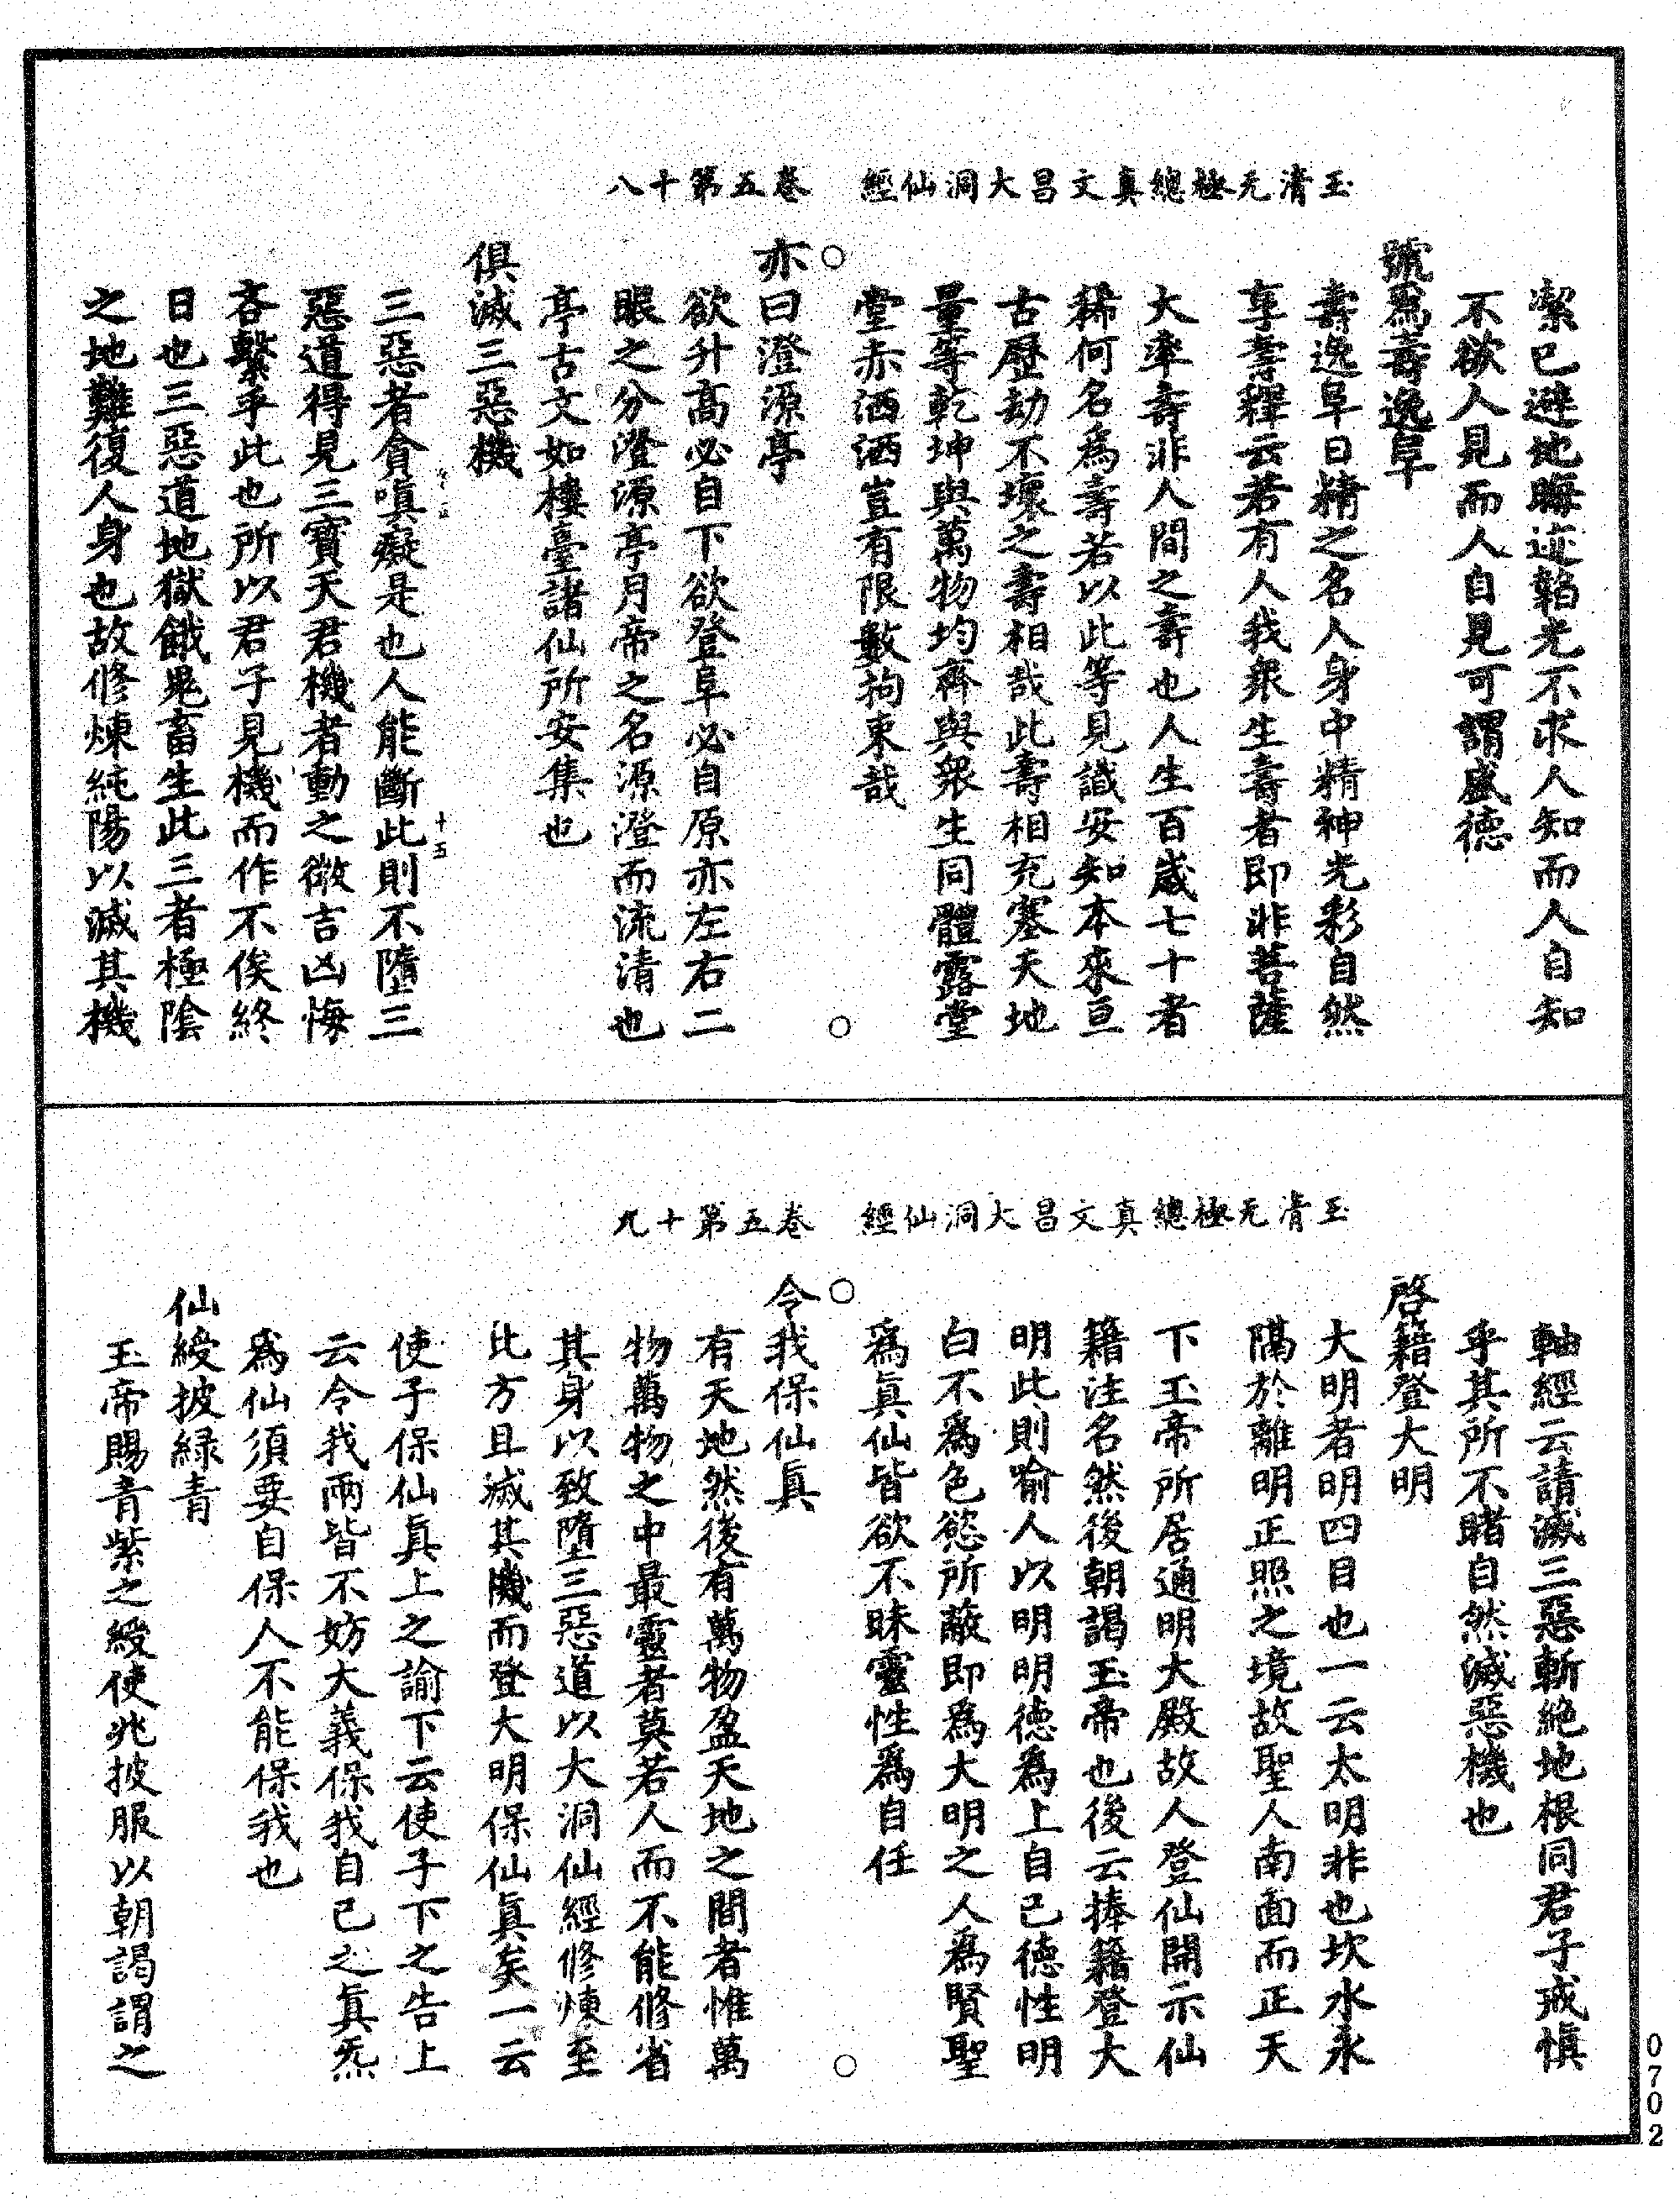 玉清无極總真文昌大洞仙經　卷五第十八
潔已避地晦迹韜光不求人知而人自知
不欲人見而人自見可謂盛德
號爲壽逸阜
壽逸阜日精之名人身中精神光彩自然
享壽釋云若有人我衆生壽者即非菩薩
大率壽非人間之壽也人生百歲七十者
稀何名爲壽若以此等見識安知本來亘
古歷劫不壞之壽相哉此壽相充塞天地
量等乾坤與萬物均齊與衆生同體露堂
堂赤洒洒豈有限數拘束哉
亦曰澄源亭
欲升高必自下欲登阜必自原亦左右二
眼之分澄源亭月帝之名源澄而流清也
亭古文如樓臺諸仙所安集也
俱滅三惡機
三惡者貪嗔癡是也人能斷此則不墮三
惡道得見三寶天君機者動之微吉凶悔
吝繫乎此也所以君子見機而作不俟終
日也三惡道地獄餓鬼畜生此三者極陰
之地難復人身也故修煉純陽以滅其機
十五
玉清无極總真文昌大洞仙經　卷五第十九
軸經云請滅三惡斬絶地根同君子戒慎
乎其所不睹自然滅惡機也
啓籍登大明
大明者明四目也一云太明非也坎水永
隔於離明正照之境故聖人南面而正天
下玉帝所居通明大殿故人登仙開示仙
籍注名然後朝謁玉帝也後云捧籍登大
明此則喻人以明明德爲上自己德性明
白不爲色慾所蔽即爲大明之人爲賢聖
爲眞仙皆欲不昧靈性爲自任
令我保仙眞
有天地然後有萬物盈天地之間者惟萬
物萬物之中最靈者莫若人而不能修省
其身以致墮三惡道以大洞仙經修煉至
比方且滅其機而登大明保仙眞矣一云
使子保仙眞上之諭下云使子下之告上
云令我兩皆不妨大義保我自已之眞炁
爲仙須要自保人不能保我也
仙綬披緑青
玉帝賜青紫之綬使兆披服以朝謁謂之
0702